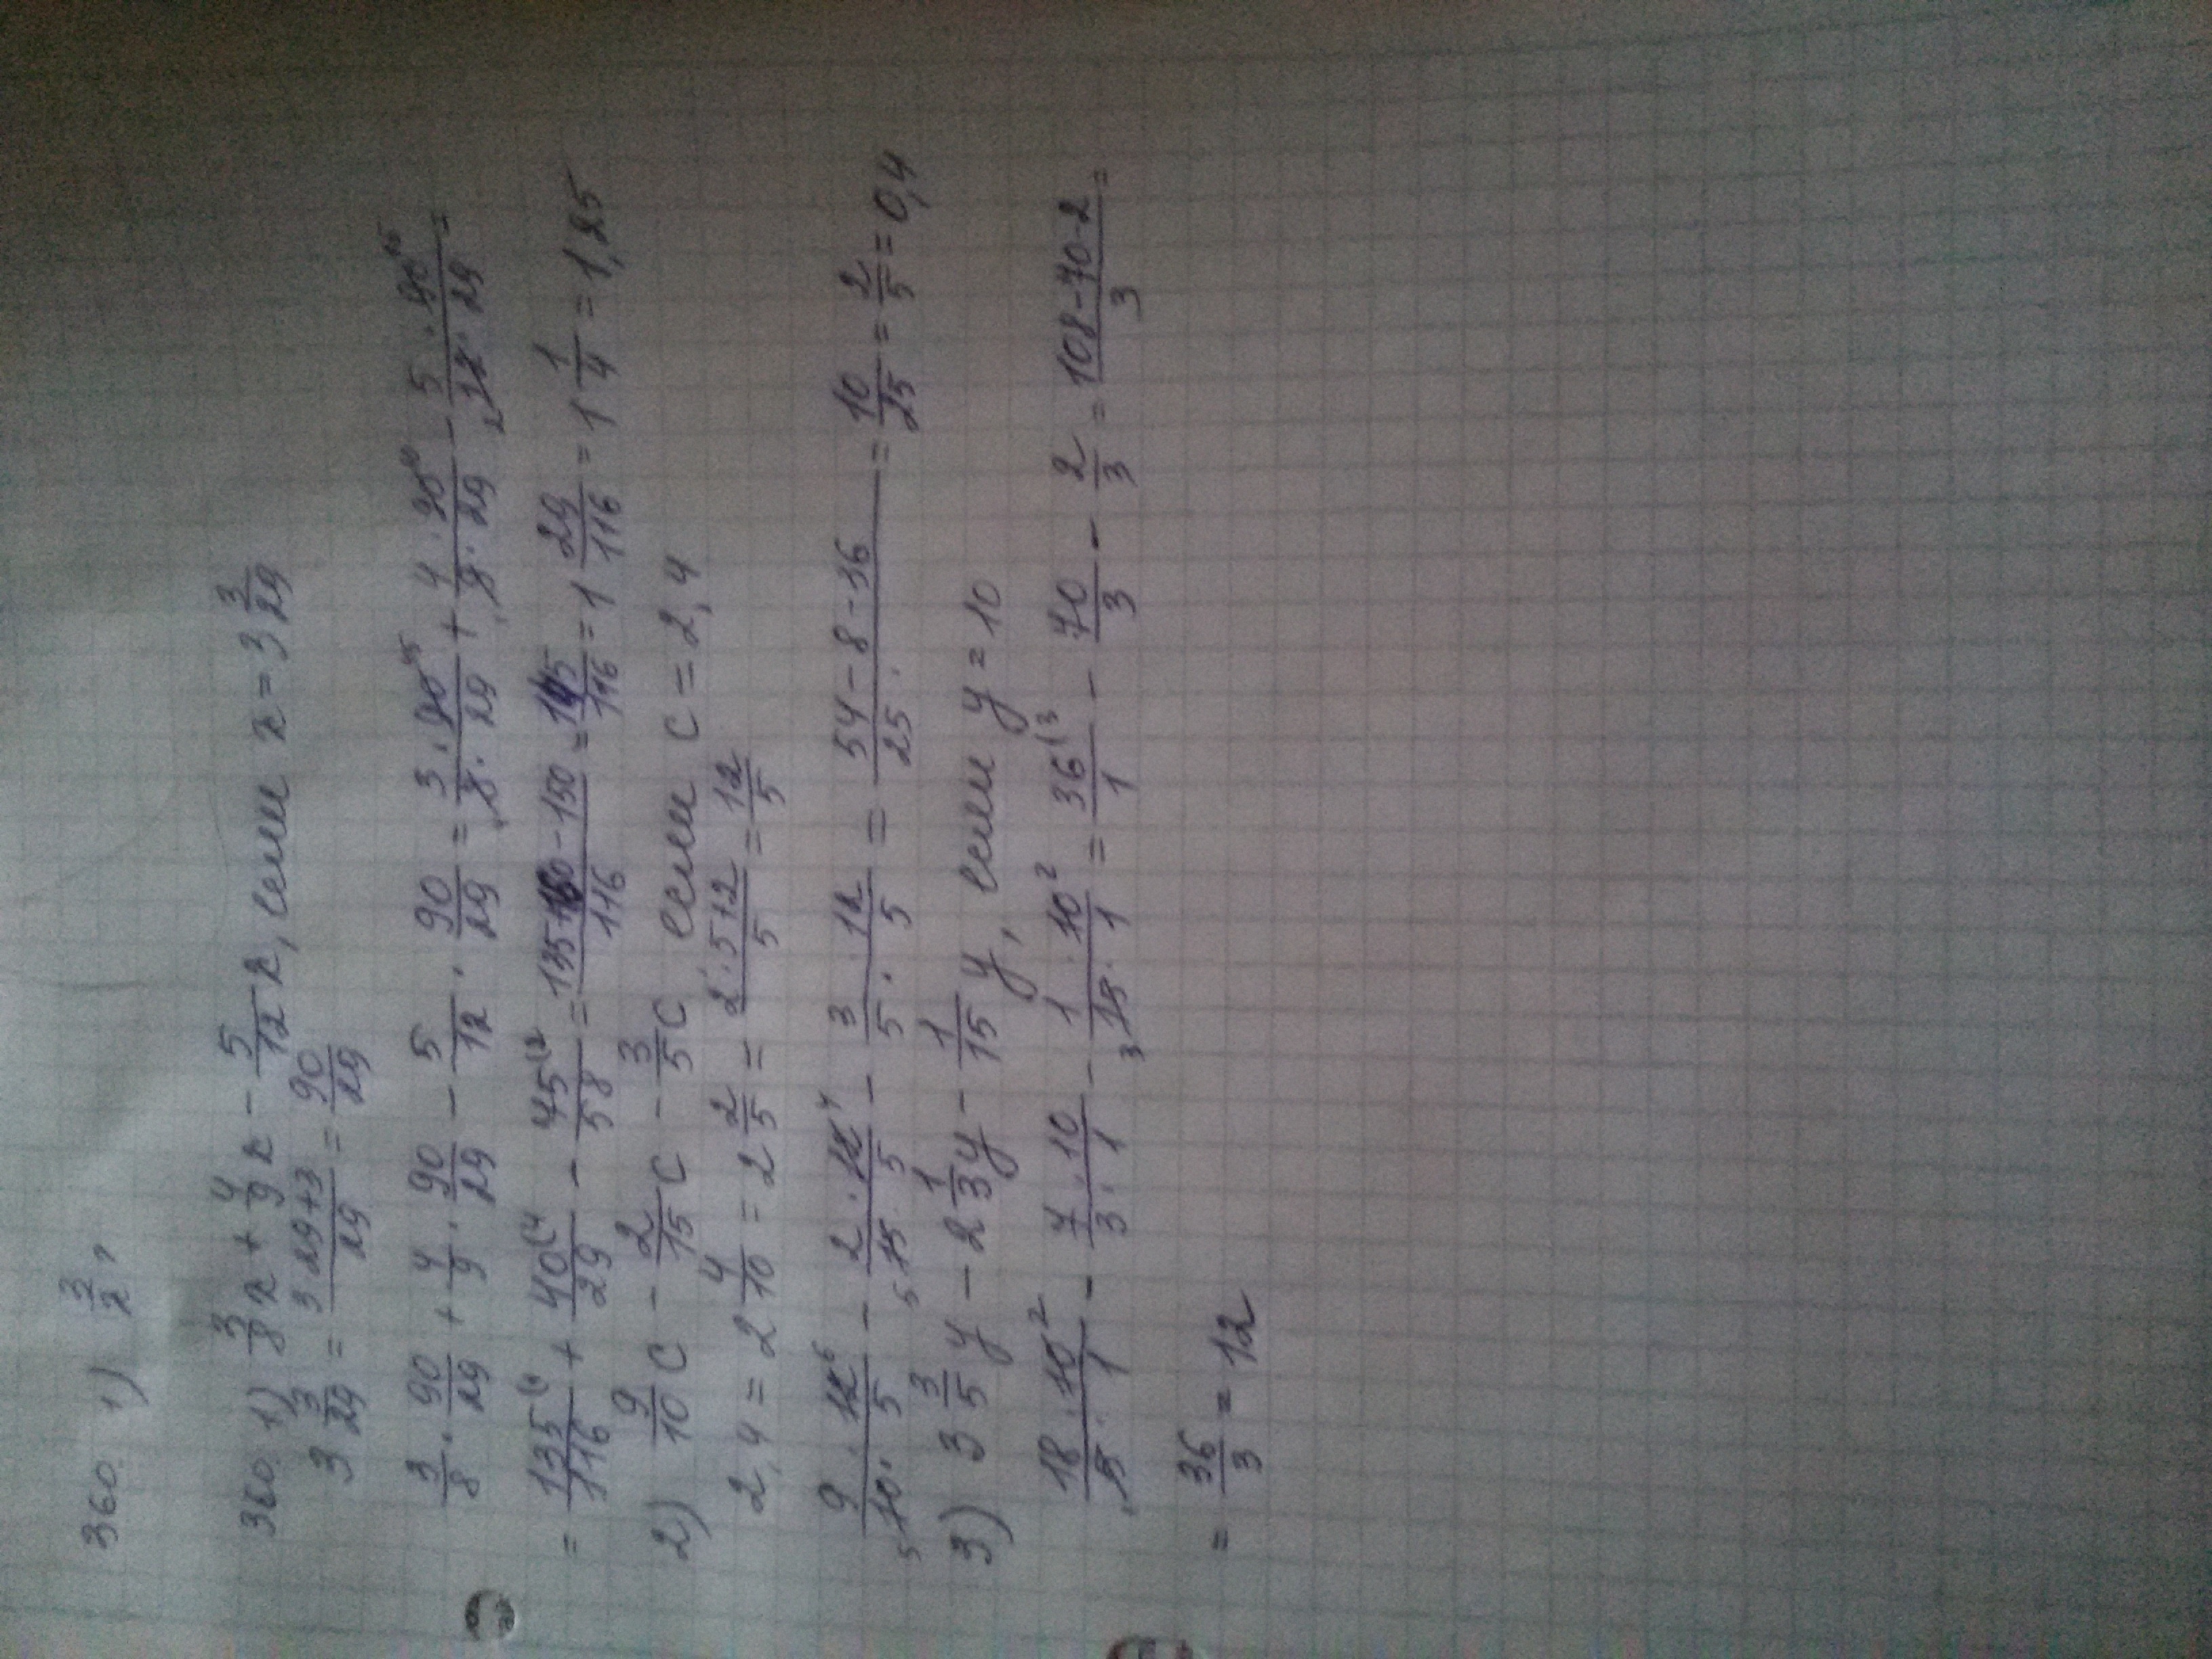 360. 1) 3/x ?
360. 1) 3/8 x + 4/9 x - 5/12 x, если x = 3 3/29
3 3/29 = (3·29+3)/29 = 90/29
3/8 · 90/29 + 4/9 · 90/29 - 5/12 · 90/29 = (3·90^45)/(8·29) + (4·90^10)/(9·29) - (5·90^15)/(2 12·29) =
= 135/116 + 40(4/29 - 75(2/58 = (135+160-150)/116 = 145/116 = 1 29/116 = 1 1/4 = 1,25
2) 9/10 c - 2/15 c - 3/5 c если c = 2,4
2,4 = 2 4/10 = 2 2/5 = (2·5+2)/5 = 12/5
(9·12^6)/(5 10·5) - (2·12^4)/(5 15·5) - 3/5 · 12/5 = (54-8-36)/25 = 10/25 = 2/5 = 0,4
3) 3 3/5 y - 2 1/3 y - 1/15 y, если y = 10
(18·10^2)/(5·1) - (7·10)/(3·1) - (1·10^2)/(3 15·1) = 36(3/1 - 70/3 - 2/3 = (108-70-2)/3 =
= 36/3 = 12